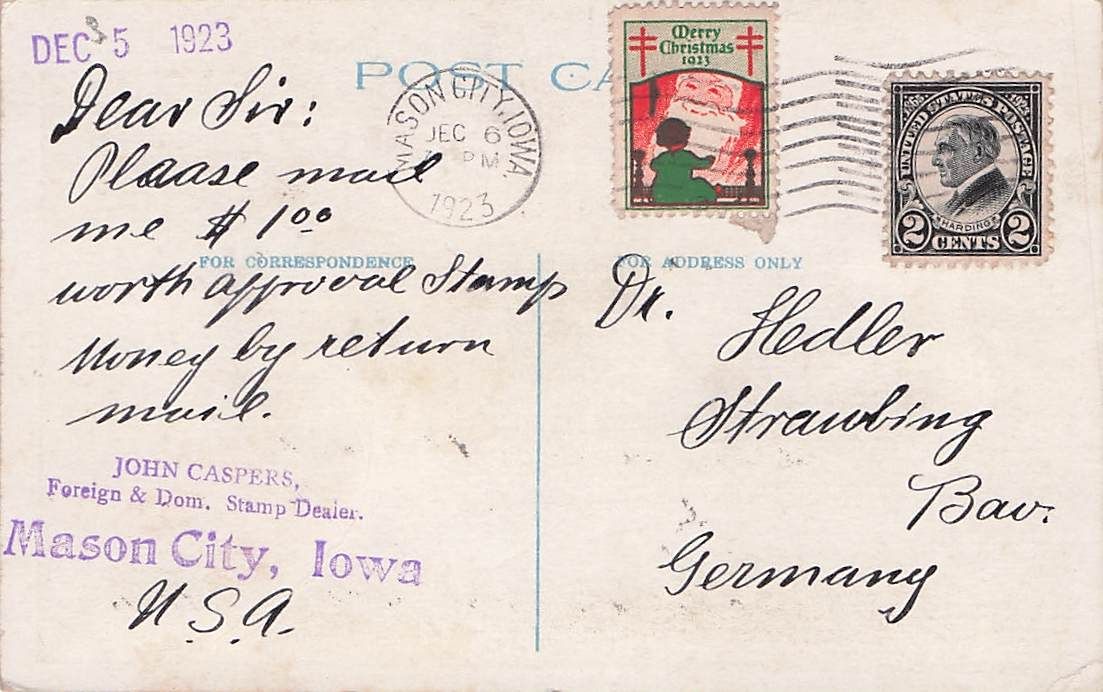 DEC 5 1923
POST CA
MASON CITY, IOWA
DEC 6
PM
1923
Merry
Christmas
1923
UNITED STATES POSTAGE
HARDING
2 CENTS 2
Dear Sir:
Plaase mail
me $ 1.00
FOR CORRESPONDENCE
worth approval Stamp
Money by return
mail.
JOHN CASPERS,
Foreign & Dom. Stamp Dealer.
Mason City, Iowa
U.S.A.
FOR ADDRESS ONLY
Dr. Hedler
Straubing
Bav.
Germany